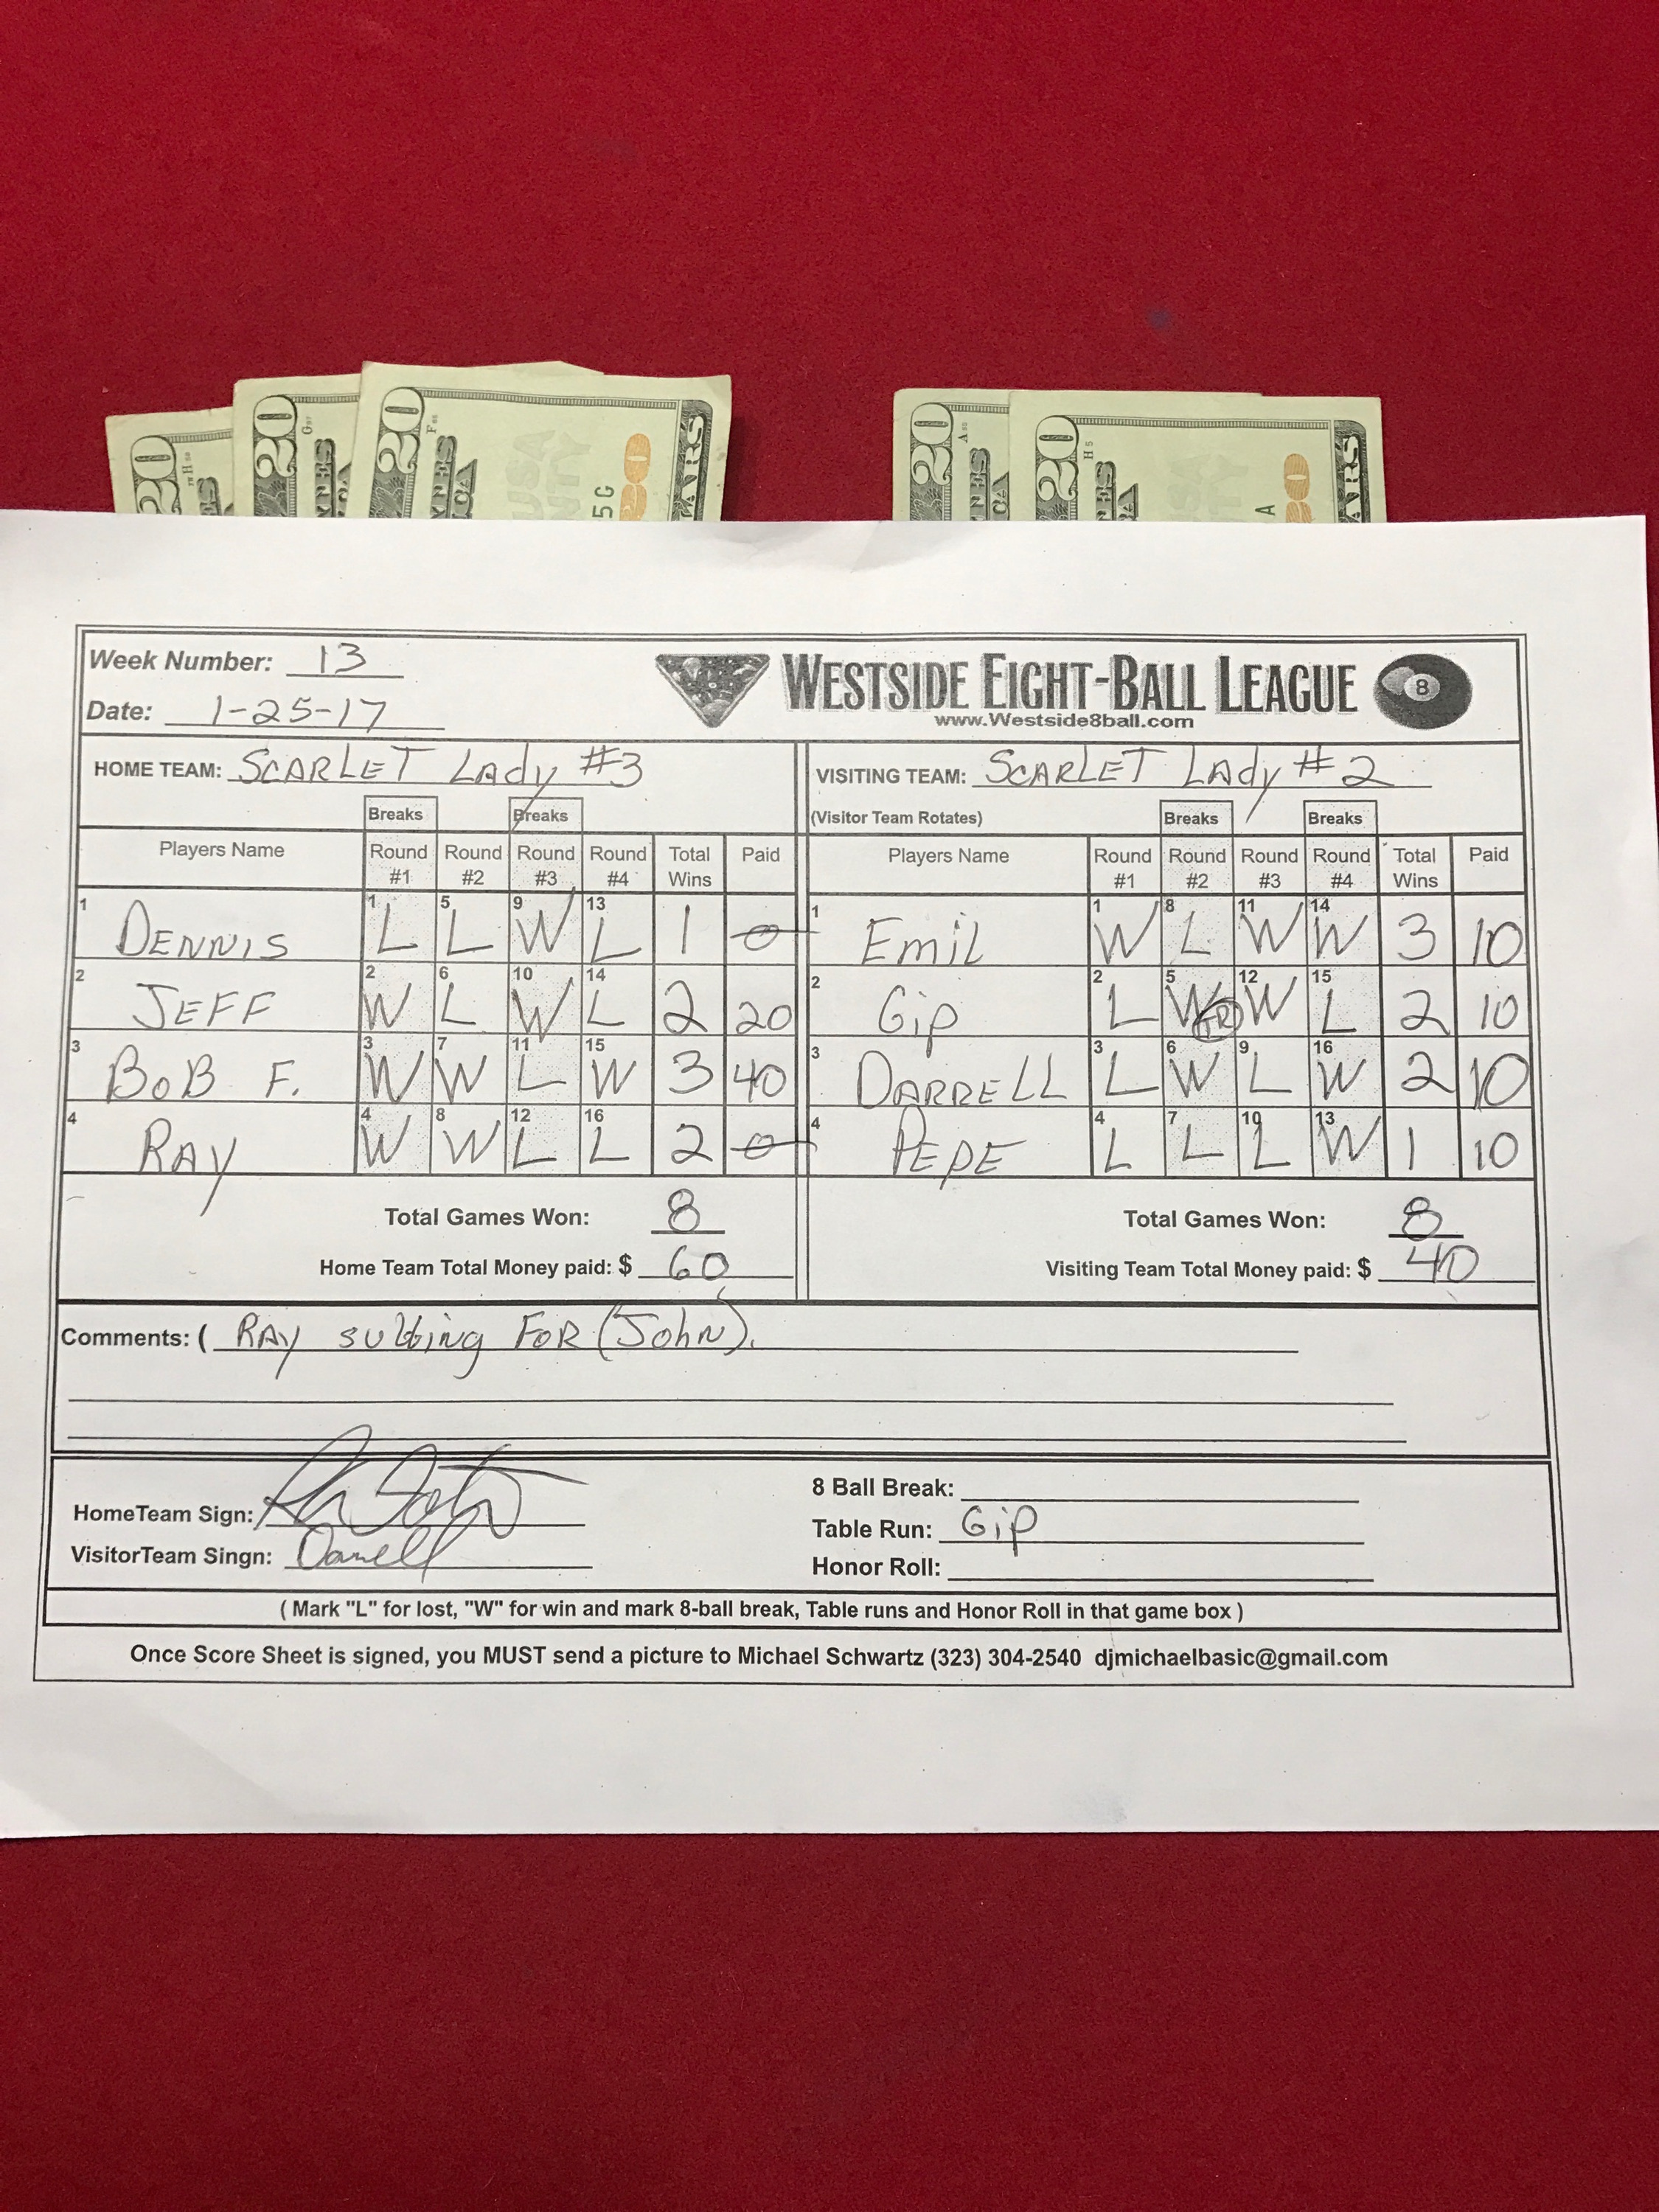 20 20 20 20 20
Week Number: 13
Date: 1-25-17
WESTSIDE EIGHT-BALL LEAGUE 8
www.Westside8ball.com
HOME TEAM: SCARLET LAdy #3
VISITING TEAM: SCARLET LAdy #2
Breaks Breaks
(Visitor Team Rotates) Breaks Breaks
Players Name Round #1 Round #2 Round #3 Round #4 Total Wins Paid
1 DENNIS 1 L 5 L 9 W 13 L 1 0
2 JEFF 2 W 6 L 10 W 14 L 2 20
3 BoB F. 3 W 7 W 11 L 15 W 3 40
4 RAy 4 W 8 W 12 L 16 L 2 0
Total Games Won: 8
Home Team Total Money paid: $ 60
Players Name Round #1 Round #2 Round #3 Round #4 Total Wins Paid
1 Emil 1 W 8 L 11 W 14 W 3 10
2 Gip 2 L 5 W TR 12 W 15 L 2 10
3 DARRELL 3 L 6 W 9 L 16 W 2 10
4 PEPE 4 L 7 L 10 L 13 W 1 10
Total Games Won: 8
Visiting Team Total Money paid: $ 40
Comments: ( RAy subbing FOR (John).
HomeTeam Sign:
VisitorTeam Singn: Darrell
8 Ball Break:
Table Run: Gip
Honor Roll:
( Mark "L" for lost, "W" for win and mark 8-ball break, Table runs and Honor Roll in that game box )
Once Score Sheet is signed, you MUST send a picture to Michael Schwartz (323) 304-2540 djmichaelbasic@gmail.com